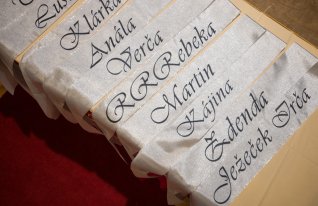 Klárka
Anála
Verča
RRRebeka
Martin
Kájina
Zdenda
Ježeček Irča